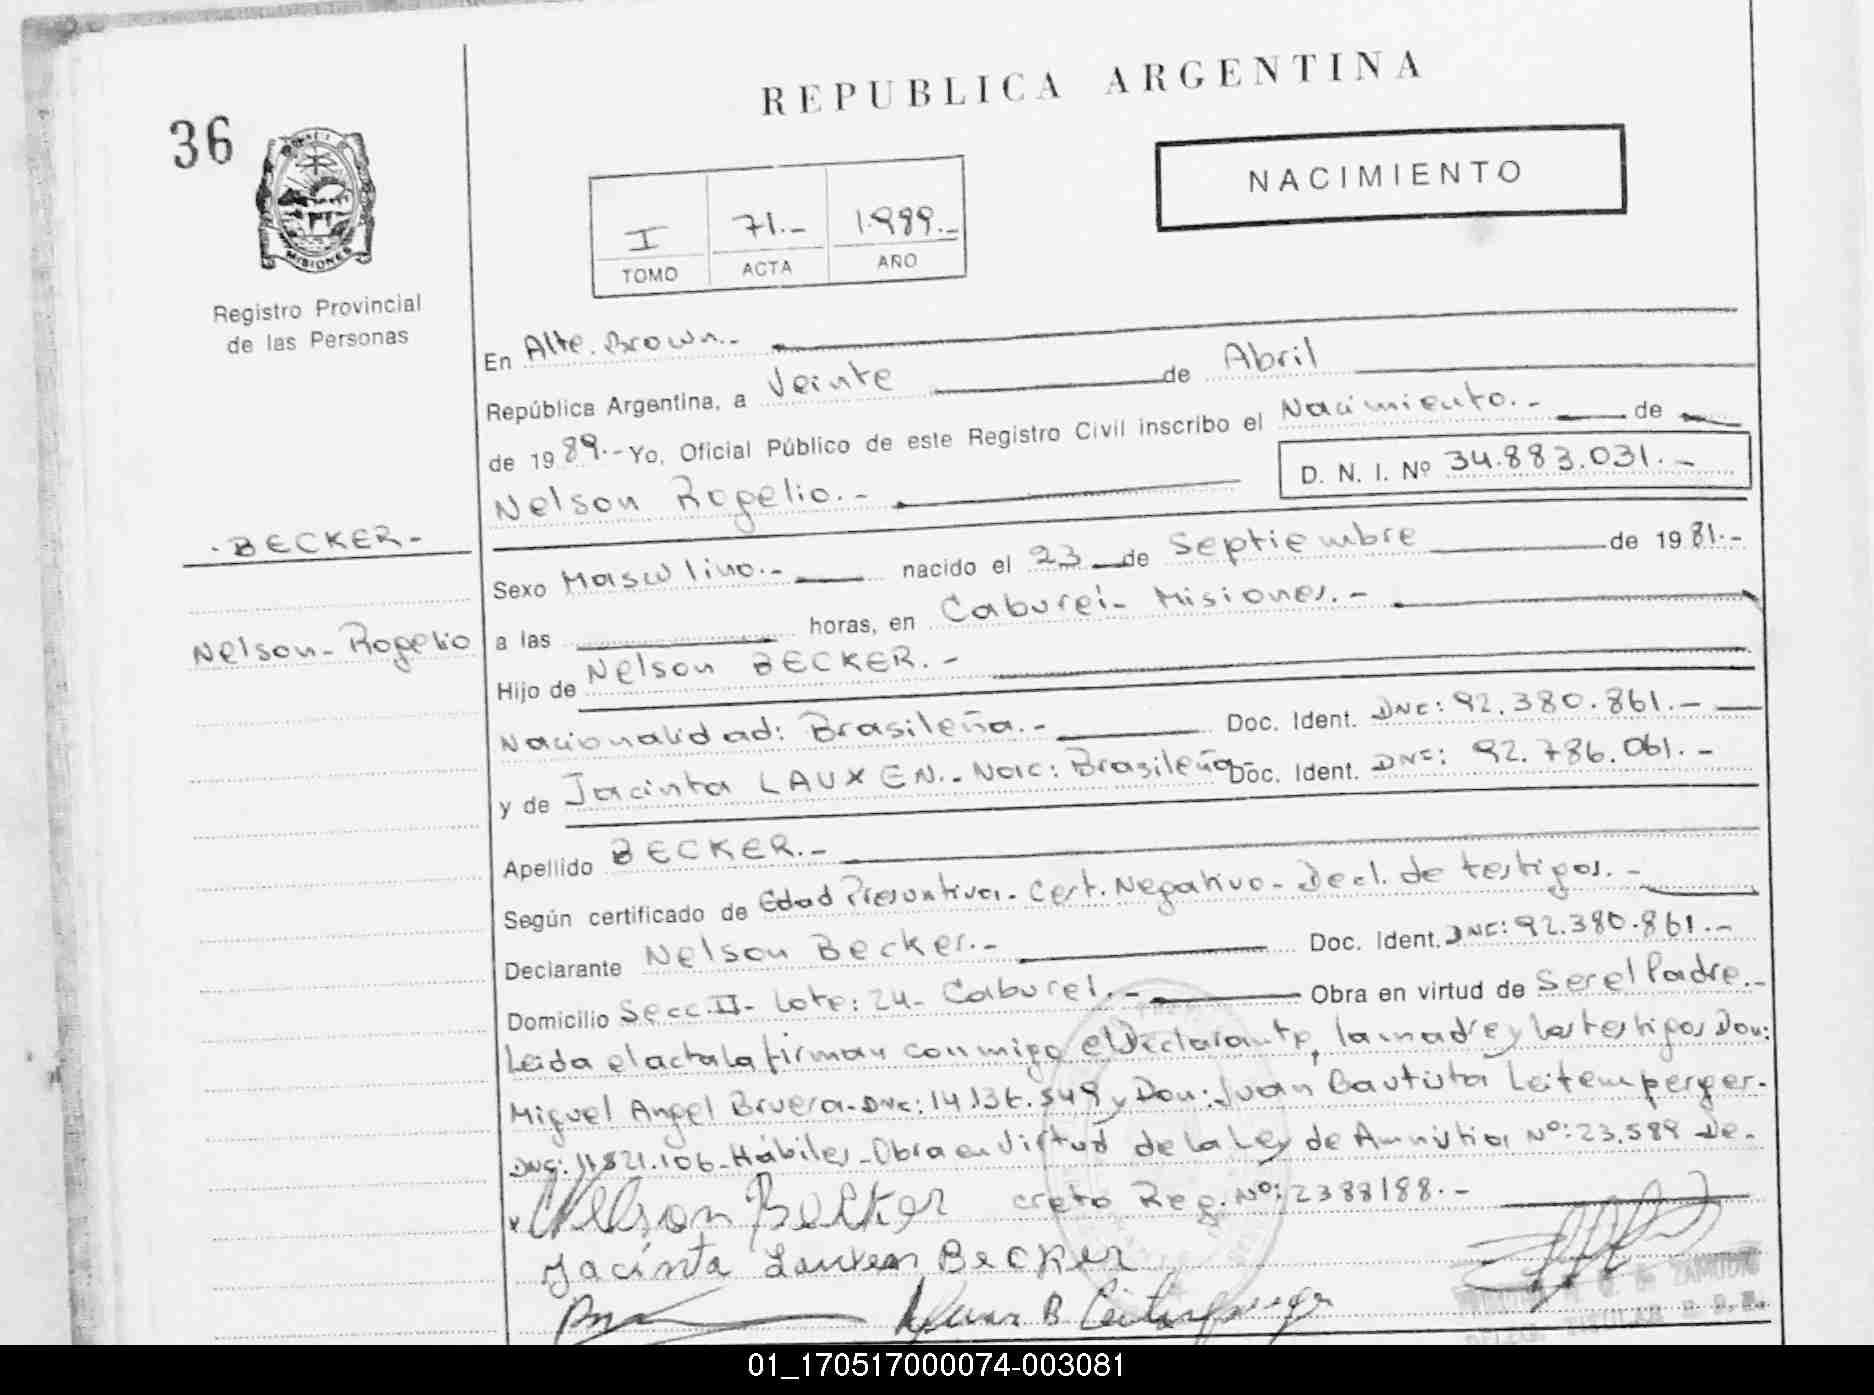 REPUBLICA ARGENTINA
36
NACIMIENTO
I 71.- 1.989.-
TOMO ACTA AÑO
MISIONES
Registro Provincial
de las Personas
En Alte. Brown.-
República Argentina, a Veinte de Abril
de 1989.- Yo, Oficial Público de este Registro Civil inscribo el Nacimiento.- de
Nelson Rogelio.- D. N. I. Nº 34.883.031.-
-BECKER-
Nelson-Rogelio
Sexo Masculino.- nacido el 23 de Septiembre de 1981.-
a las horas, en Caburei- Misiones.-
Hijo de Nelson BECKER.-
Nacionalidad: Brasileña.- Doc. Ident. DNE: 92.380.861.-
y de Jacinta LAUXEN.- Nac: Brasileña- Doc. Ident. DNE: 92.786.061.-
Apellido BECKER.-
Según certificado de Edad Presuntiva- Cert. Negativo- Decl. de testigos.-
Declarante Nelson Becker.- Doc. Ident. DNE: 92.380.861.-
Domicilio Secc. II- Lote: 24- Caburei.- Obra en virtud de Ser el Padre.-
Leida el acta la firman conmigo el Declarante, la madre y los testigos Don:
Miguel Angel Bruera- DNE: 14.136.549 y Don: Juan Bautista Leitemperger-
DNE: 11.821.106- Hábiles- Obra en Virtud de la Ley de Amnistia Nº: 23.589 De-
creto Reg. Nº: 2388188.-
Nelson Becker
Jacinta Lauxen Becker
Juan B
TITULAR
01_170517000074-003081